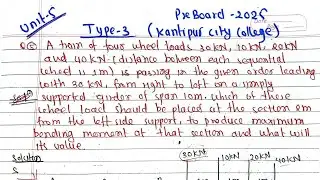 Unit-5
PreBoard-2025
Type-3 (Kantipur City College)
Q) A train of four wheel loads 30KN, 10KN, 20KN
and 40KN (distance between each sequential
wheel is 1m) is passing in the given order leading
with 30KN, from right to left on a simply
supported girder of span 10m which of these
wheel load should be placed at the section 8m
from the left side support, to produce maximum
bending moment at that section and what will
its value.
Solution
30KN 10KN 20KN 40KN